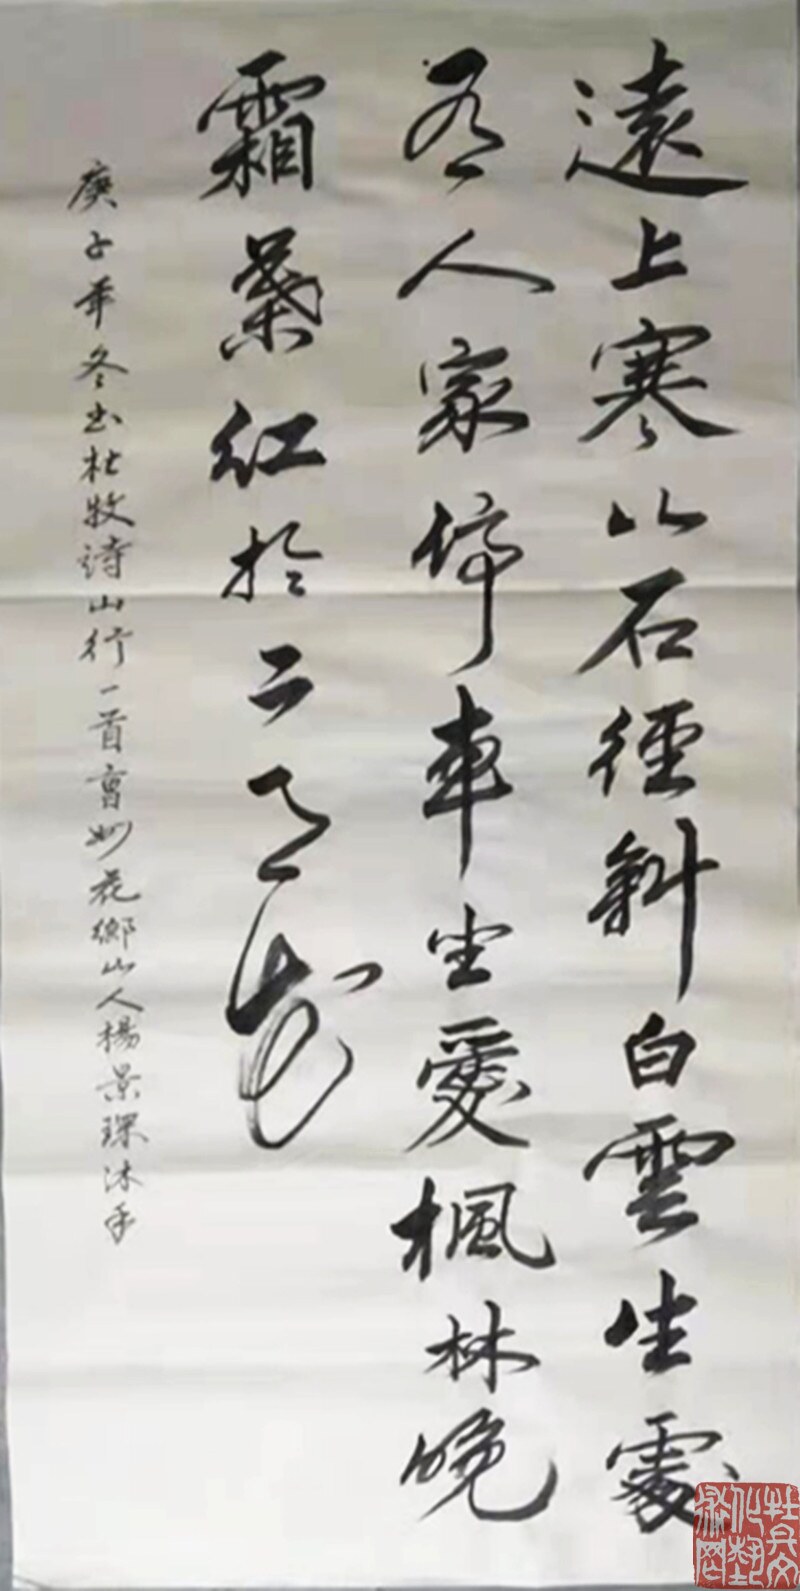 遠上寒山石徑斜白雲生處
有人家停車坐愛楓林晚
霜葉紅於二月花
庚子年冬書杜牧詩山行一首 花鄉山人楊景琛沐手